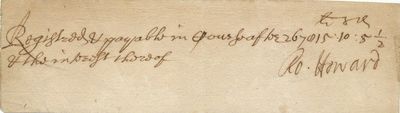 Registred & payable in Course after 267015 : 10 : 5 1/2
& the interest thereof
Ro. Howard